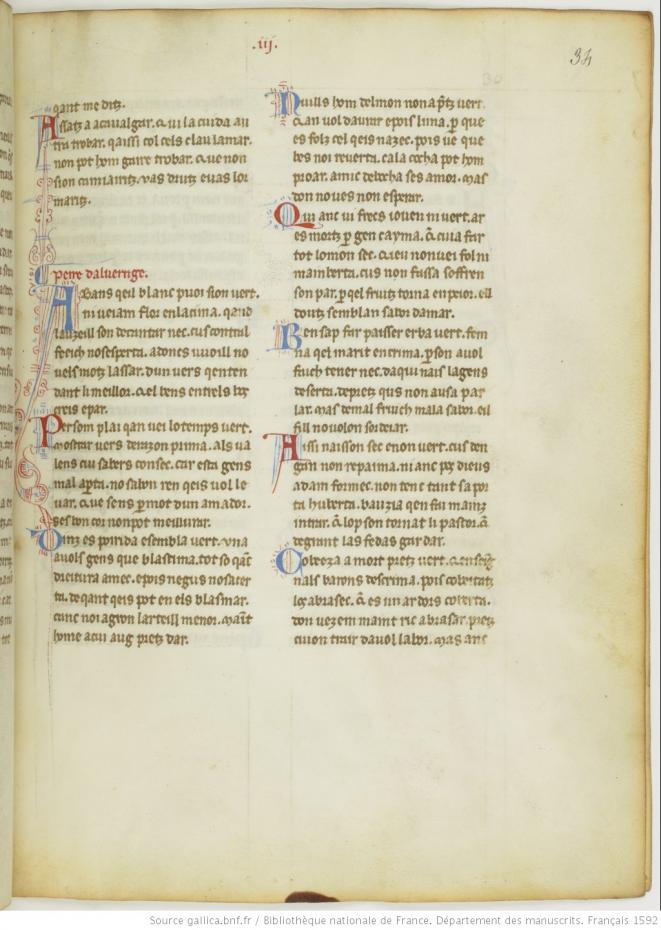 .iij.
34
30
qant me ditz.
Assatz a aciualgar. qui la cuida au
tru trobar. qaissi col cels clau lamar.
non pot hom gaire trobar. que non
sion camiaritz. vas drutz euas lor
maritz.
peire daluernge.
Abans qeil blanc puoi sion vert.
ni veiam flor en lacima. qand
lauzeill son
freich nosesperta. adoncs uuoill no
uels motz lassar. dun vers qenten
dant li meillor. qel bens entrels bos
creis epar.
Per som plai qan vei lo temps vert.
mostrar vers derazon prima. als va
lens cui sabers consec. car esta gens
mal apta. no sabon ren qeis vol le
uar. que sens p mot dun amador.
ses bon cor non pot meillurar.
es poirida esembla vert. vna
auols gens que blastima. tot so qanc
dreitura amec. epois negus nosacer
ta. de qant qeis pot en els blasmar.
canc noi agron larteill menor. mant
home acui aug pretz dar.
Nuills hom delmon non a ptz vert.
qan vol daurar epois lima. p que
es folz cel qeis nazec. pois ue que
bes noi reuerta. cala cocha pot hom
proar. amic debocha ses amor. mas
don noues non esperar.
Qui anc ui frecs iouen ni vert. ar
es mortz p gen cayma. q cuia far
tot lomon sec. qeu non uei fol ni
mamberta. cus non fassa soffren
son par. p qel fruitz torna en peior. eil
doutz semblan sabor damar.
Ben sap far paisser erba vert. fem
na qel marit encrima. p son auol
fruch tener nec. daqui nais la gens
deserta. depretz qus non ausa par
lar. mas demal fruich mala sabor. eil
fill nouolon sordeiar.
Aissi naisson sec enon vert. cus den
gan non repaima. ni anc pz dieus
adam formec. non tenc tant sa por
ta huberta. bauzia qen fai mainz
intrar. q lop son tornat li pastor. q
degran las fedas gardar.
Cobeeza a mort pretz vert. q enseig
nals barons descrima. pois cobeitatz
los abrasec. q es un ardors coberta.
don uezem maint ric abrasar. pretz
cuion trair dauol labor. mas anc
Source gallica.bnf.fr / Bibliothèque nationale de France. Département des manuscrits. Français 1592